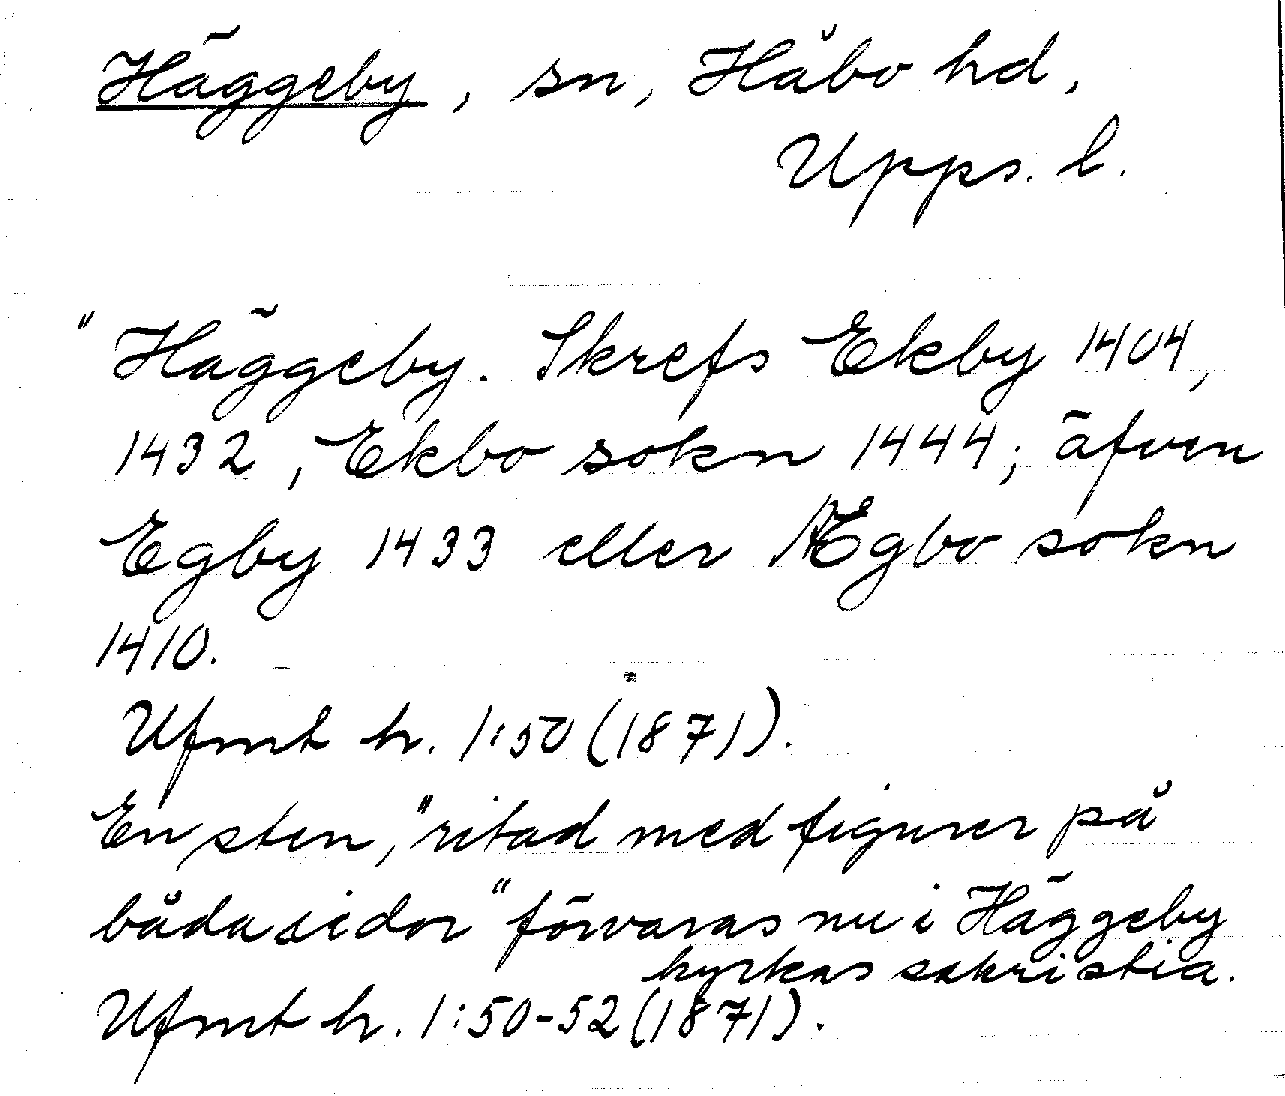 Häggeby, sn, Håbo hd,
Upps. l.
"Häggeby. Skrefs Ekby 1404,
1432, Ekbo sokn 1444; äfven
Egby 1433 eller Ægbo sokn
1410.
Ufmt h. 1:50 (1871).
En sten, "ritad med figurer på
båda sidor" förvaras nu i Häggeby
kyrkas sakristia.
Ufmt h. 1:50-52 (1871).